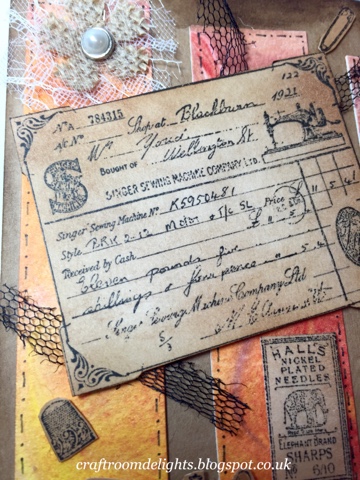 No A 784315
122
Shop at Blackburn 1921
Mr
BOUGHT OF Wellington St.
SINGER SEWING MACHINE COMPANY LTD.
Singer Sewing Machine No. K5950481
Style Motor Price
Received by Cash £ 11 5 4
Eleven pounds five
shillings & four pence
Singer Sewing Machine Company Ltd
HALL'S
NICKEL
PLATED
NEEDLES
ELEPHANT BRAND
SHARPS
No 6/10
craftroomdelights.blogspot.co.uk